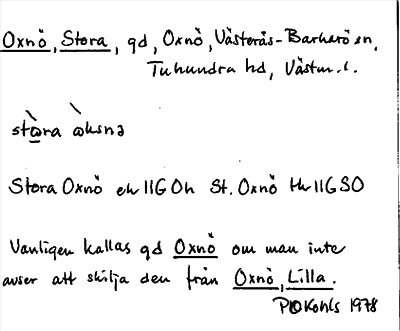 Oxnö, Stora, gd, Oxnö, Västerås-Barkarö sn,
Tuhundra hd, Västm. l.
Stora Oxnö ek 11G0h St. Oxnö tk 11GSO
Vanligen kallas gd Oxnö om man inte
avser att skilja den från Oxnö, Lilla.
Kohls 1978